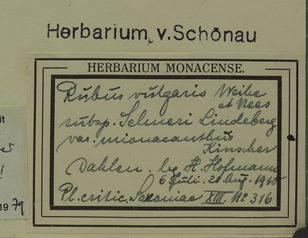 Herbarium v. Schönau
HERBARIUM MONACENSE.
Rubus vulgaris Weihe
et Nees
subsp. Selmeri Lindeberg
var. mionacanthus
Kinscher
Dahlen. leg H. Hofmann
6 Juli. 20 Aug. 1905
Pl. critic. Saxoniae XIII No 316
1979